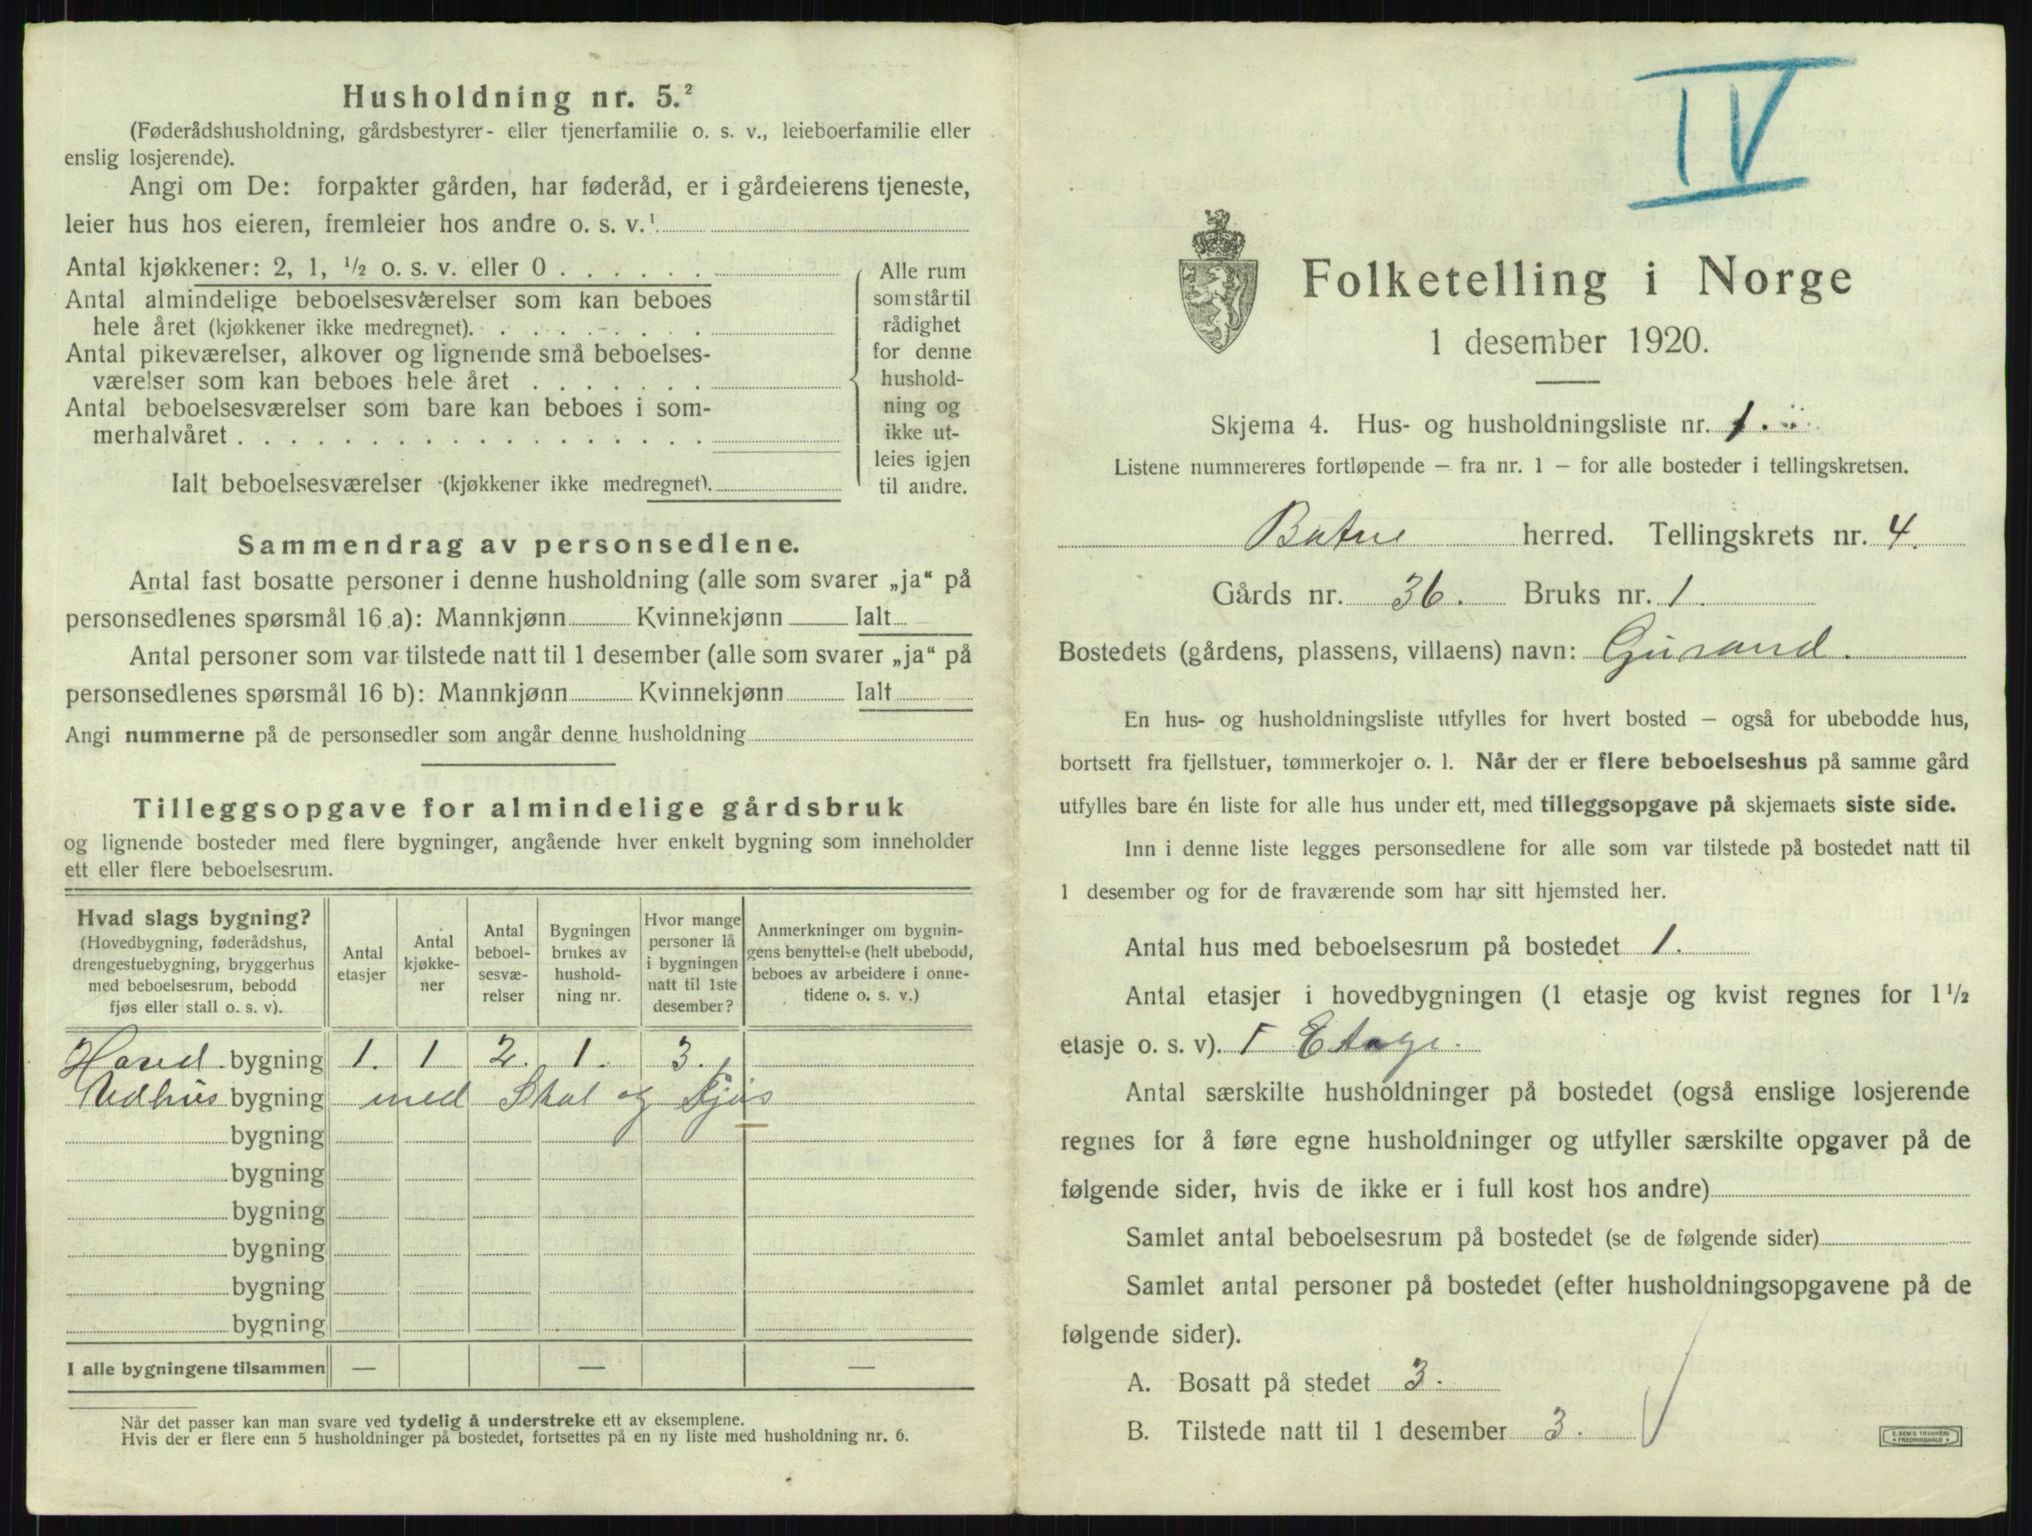 Husholdning nr. 5.²
(Føderådshusholdning, gårdsbestyrer- eller tjenerfamilie o. s. v., leieboerfamilie eller
enslig losjerende).
Angi om De: forpakter gården, har føderåd, er i gårdeierens tjeneste,
leier hus hos eieren, fremleier hos andre o. s. v.¹
Antal kjøkkener: 2, 1, ½ o. s. v. eller 0 . . . . . .
Antal almindelige beboelsesværelser som kan beboes
hele året (kjøkkener ikke medregnet). . . . . . . . .
Antal pikeværelser, alkover og lignende små beboelses-
værelser som kan beboes hele året . . . . . . .
Antal beboelsesværelser som bare kan beboes i som-
merhalvåret . . . . . . . . . . . . . . . . . .
Ialt beboelsesværelser (kjøkkener ikke medregnet).
Alle rum
som står til
rådighet
for denne
hushold-
ning og
ikke ut-
leies igjen
til andre.
Sammendrag av personsedlene.
Antal fast bosatte personer i denne husholdning (alle som svarer „ja“ på
personsedlenes spørsmål 16 a): Mannkjønn Kvinnekjønn Ialt
Antal personer som var tilstede natt til 1 desember (alle som svarer „ja“ på
personsedlenes spørsmål 16 b): Mannkjønn Kvinnekjønn Ialt
Angi nummerne på de personsedler som angår denne husholdning
Tilleggsopgave for almindelige gårdsbruk
og lignende bosteder med flere bygninger, angående hver enkelt bygning som inneholder
ett eller flere beboelsesrum.
Hvad slags bygning?
(Hovedbygning, føderådshus,
drengestuebygning, bryggerhus
med beboelsesrum, bebodd
fjøs eller stall o. s. v).
Antal
etasjer
Antal
kjøkke-
ner
Antal
beboel-
sesvæ-
relser
Bygningen
brukes av
hushold-
ning nr.
Hvor mange
personer lå
i bygningen
natt til 1ste
desember?
Anmerkninger om bygnin-
gens benyttelse (helt ubebodd,
beboes av arbeidere i onne-
tidene o. s. v.)
Hoved bygning 1. 1 2. 1. 3.
Vedhus bygning med Stal og Fjøs
bygning
bygning
bygning
bygning
bygning
bygning
I alle bygningene tilsammen — — —
Når det passer kan man svare ved tydelig å understreke ett av eksemplene.
Hvis der er flere enn 5 husholdninger på bostedet, fortsettes på en ny liste med husholdning nr. 6.
IV
Folketelling i Norge
1 desember 1920.
Skjema 4. Hus- og husholdningsliste nr. 1.
Listene nummereres fortløpende — fra nr. 1 — for alle bosteder i tellingskretsen.
Batne herred. Tellingskrets nr. 4.
Gårds nr. 36. Bruks nr. 1.
Bostedets (gårdens, plassens, villaens) navn: Gjusand.
En hus- og husholdningsliste utfylles for hvert bosted — også for ubebodde hus,
bortsett fra fjellstuer, tømmerkojer o. l. Når der er flere beboelseshus på samme gård
utfylles bare én liste for alle hus under ett, med tilleggsopgave på skjemaets siste side.
Inn i denne liste legges personsedlene for alle som var tilstede på bostedet natt til
1 desember og for de fraværende som har sitt hjemsted her.
Antal hus med beboelsesrum på bostedet 1.
Antal etasjer i hovedbygningen (1 etasje og kvist regnes for 1½
etasje o. s. v). 1 Etage.
Antal særskilte husholdninger på bostedet (også enslige losjerende
regnes for å føre egne husholdninger og utfyller særskilte opgaver på de
følgende sider, hvis de ikke er i full kost hos andre)
Samlet antal beboelsesrum på bostedet (se de følgende sider)
Samlet antal personer på bostedet (efter husholdningsopgavene på de
følgende sider).
A. Bosatt på stedet 3.
B. Tilstede natt til 1 desember 3.
E. SEM'S TRYKKERI
FREDRIKSHALD